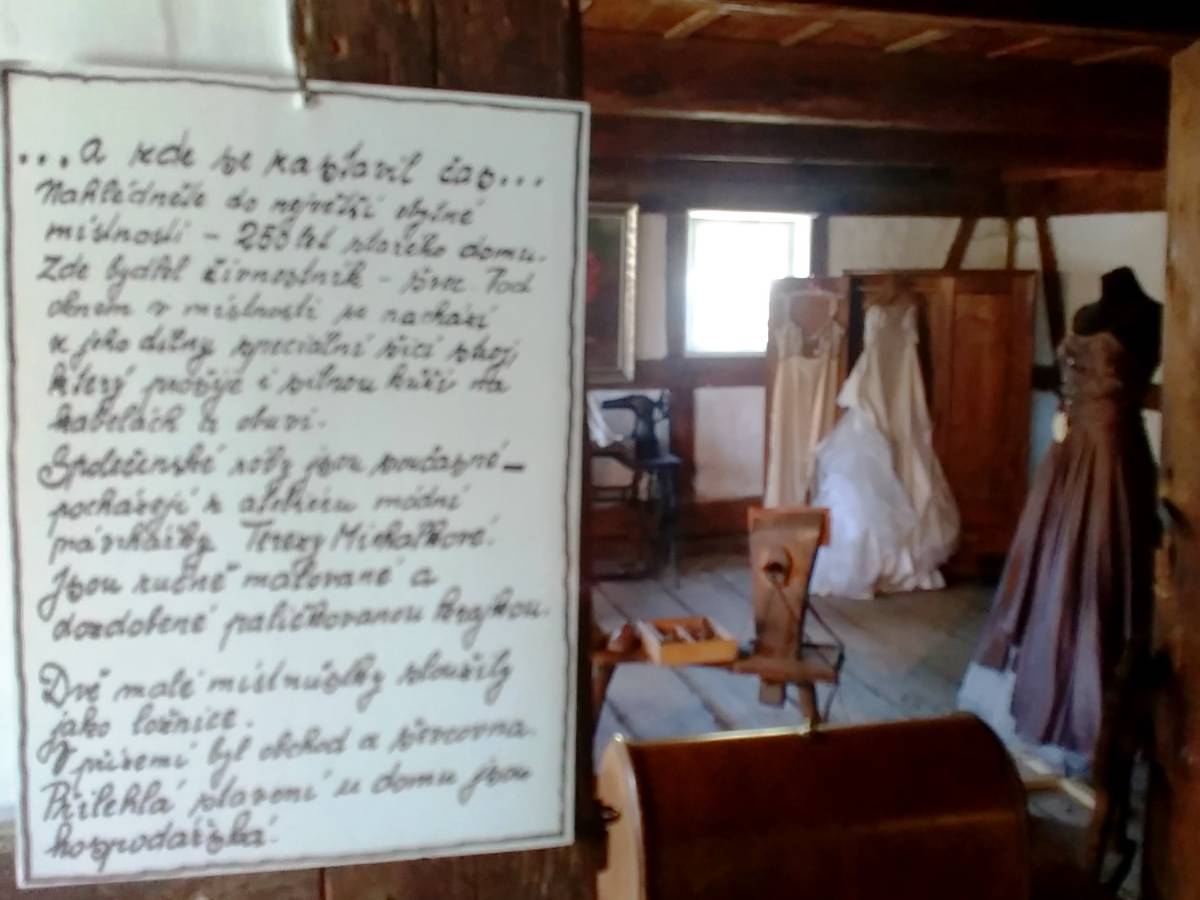 ...a kde se zastavil čas...
Nahlédněte do největší obytné
místnosti - 250 let starého domu.
Zde bydlel živnostník - švec. Pod
oknem v místnosti se nachází
z jeho dílny speciální šicí stroj,
který prošije i silnou kůži na
kabelách a obuvi.
Společenské róby jsou současné -
pocházejí z ateliéru módní
návrhářky Terezy Michalkové.
Jsou ručně malované a
dozdobené paličkovanou krajkou.
Dvě malé místnůstky sloužily
jako ložnice.
V přízemí byl obchod a ševcovna.
Přilehlá stavení u domu jsou
hospodářská.